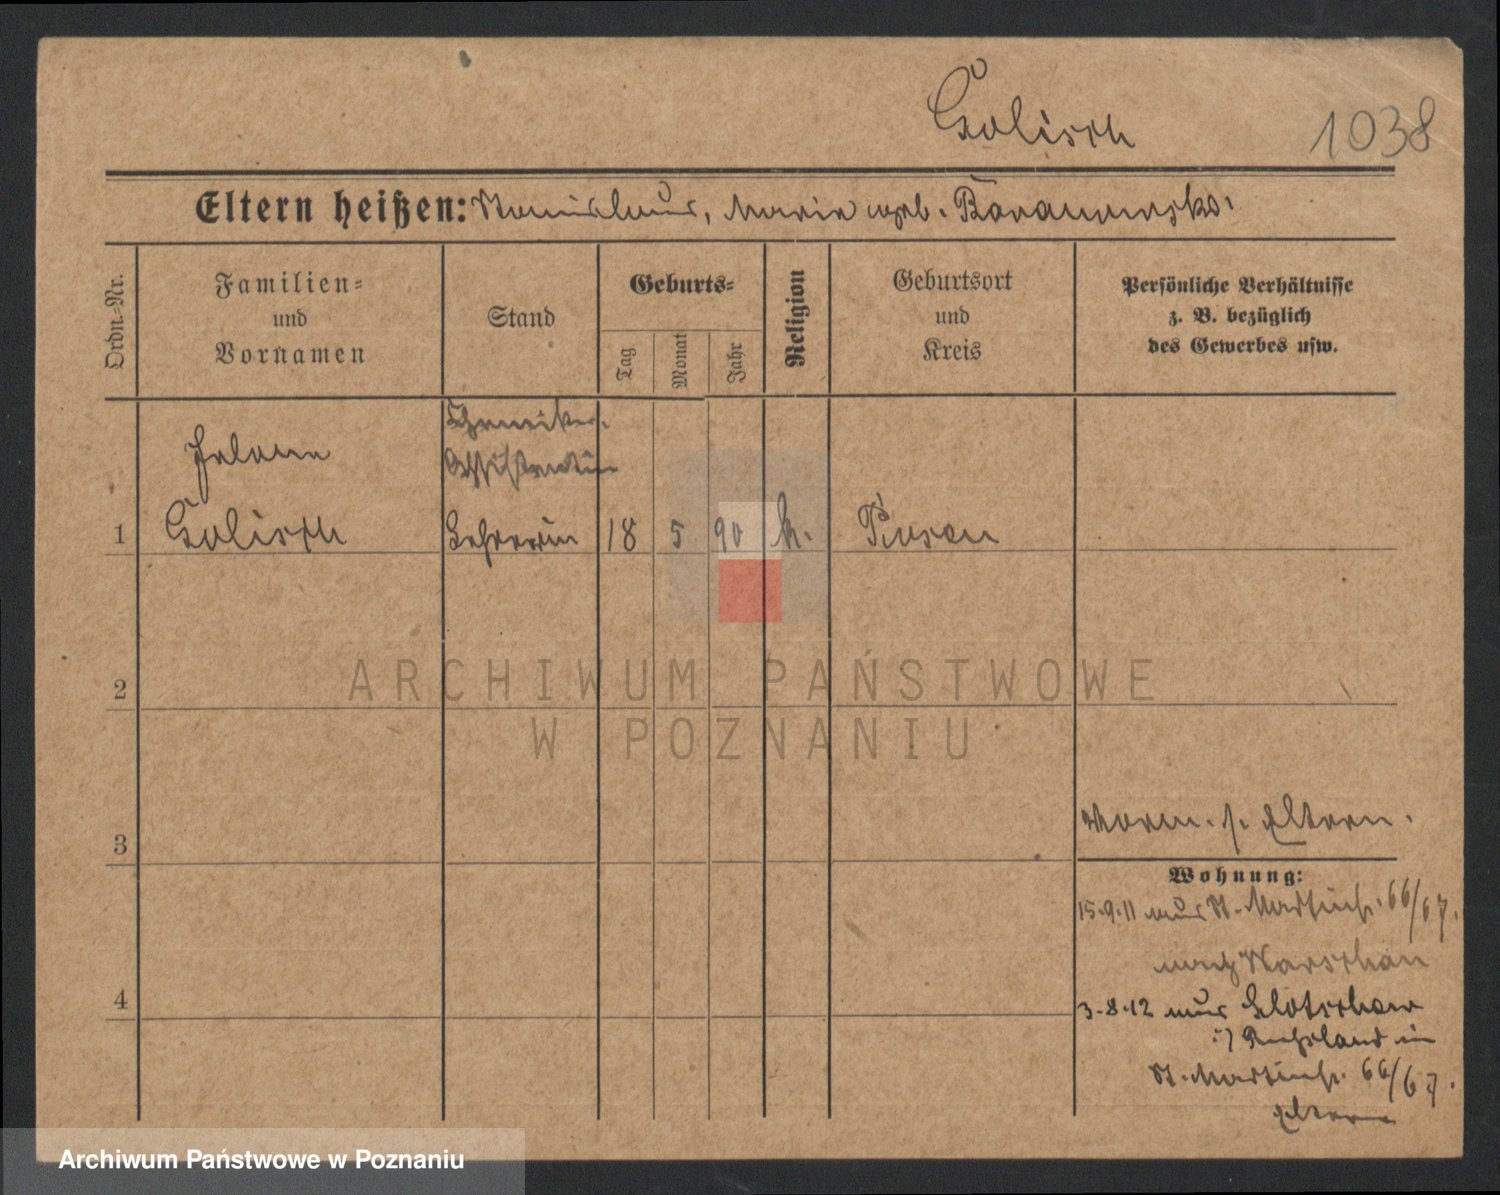 Golisch
1038
Eltern heißen: Stanislaus, Marie geb. Baranowska.
Ordn.-Nr.
Familien-
und
Vornamen
Stand
Geburts-
Tag
Monat
Jahr
Religion
Geburtsort
und
Kreis
Persönliche Verhältnisse
z. B. bezüglich
des Gewerbes usw.
Helene
Assistentin
1 Golisch Lehrerin 18 5 90 k. Posen
2
3
4
ARCHIWUM PAŃSTWOWE
W POZNANIU
Eltern.
Wohnung:
15.9.11 aus St. Martinstr. 66/67.
nach Warschau
3.8.12 aus
Russland in
St. Martinstr. 66/67.
Eltern
Archiwum Państwowe w Poznaniu